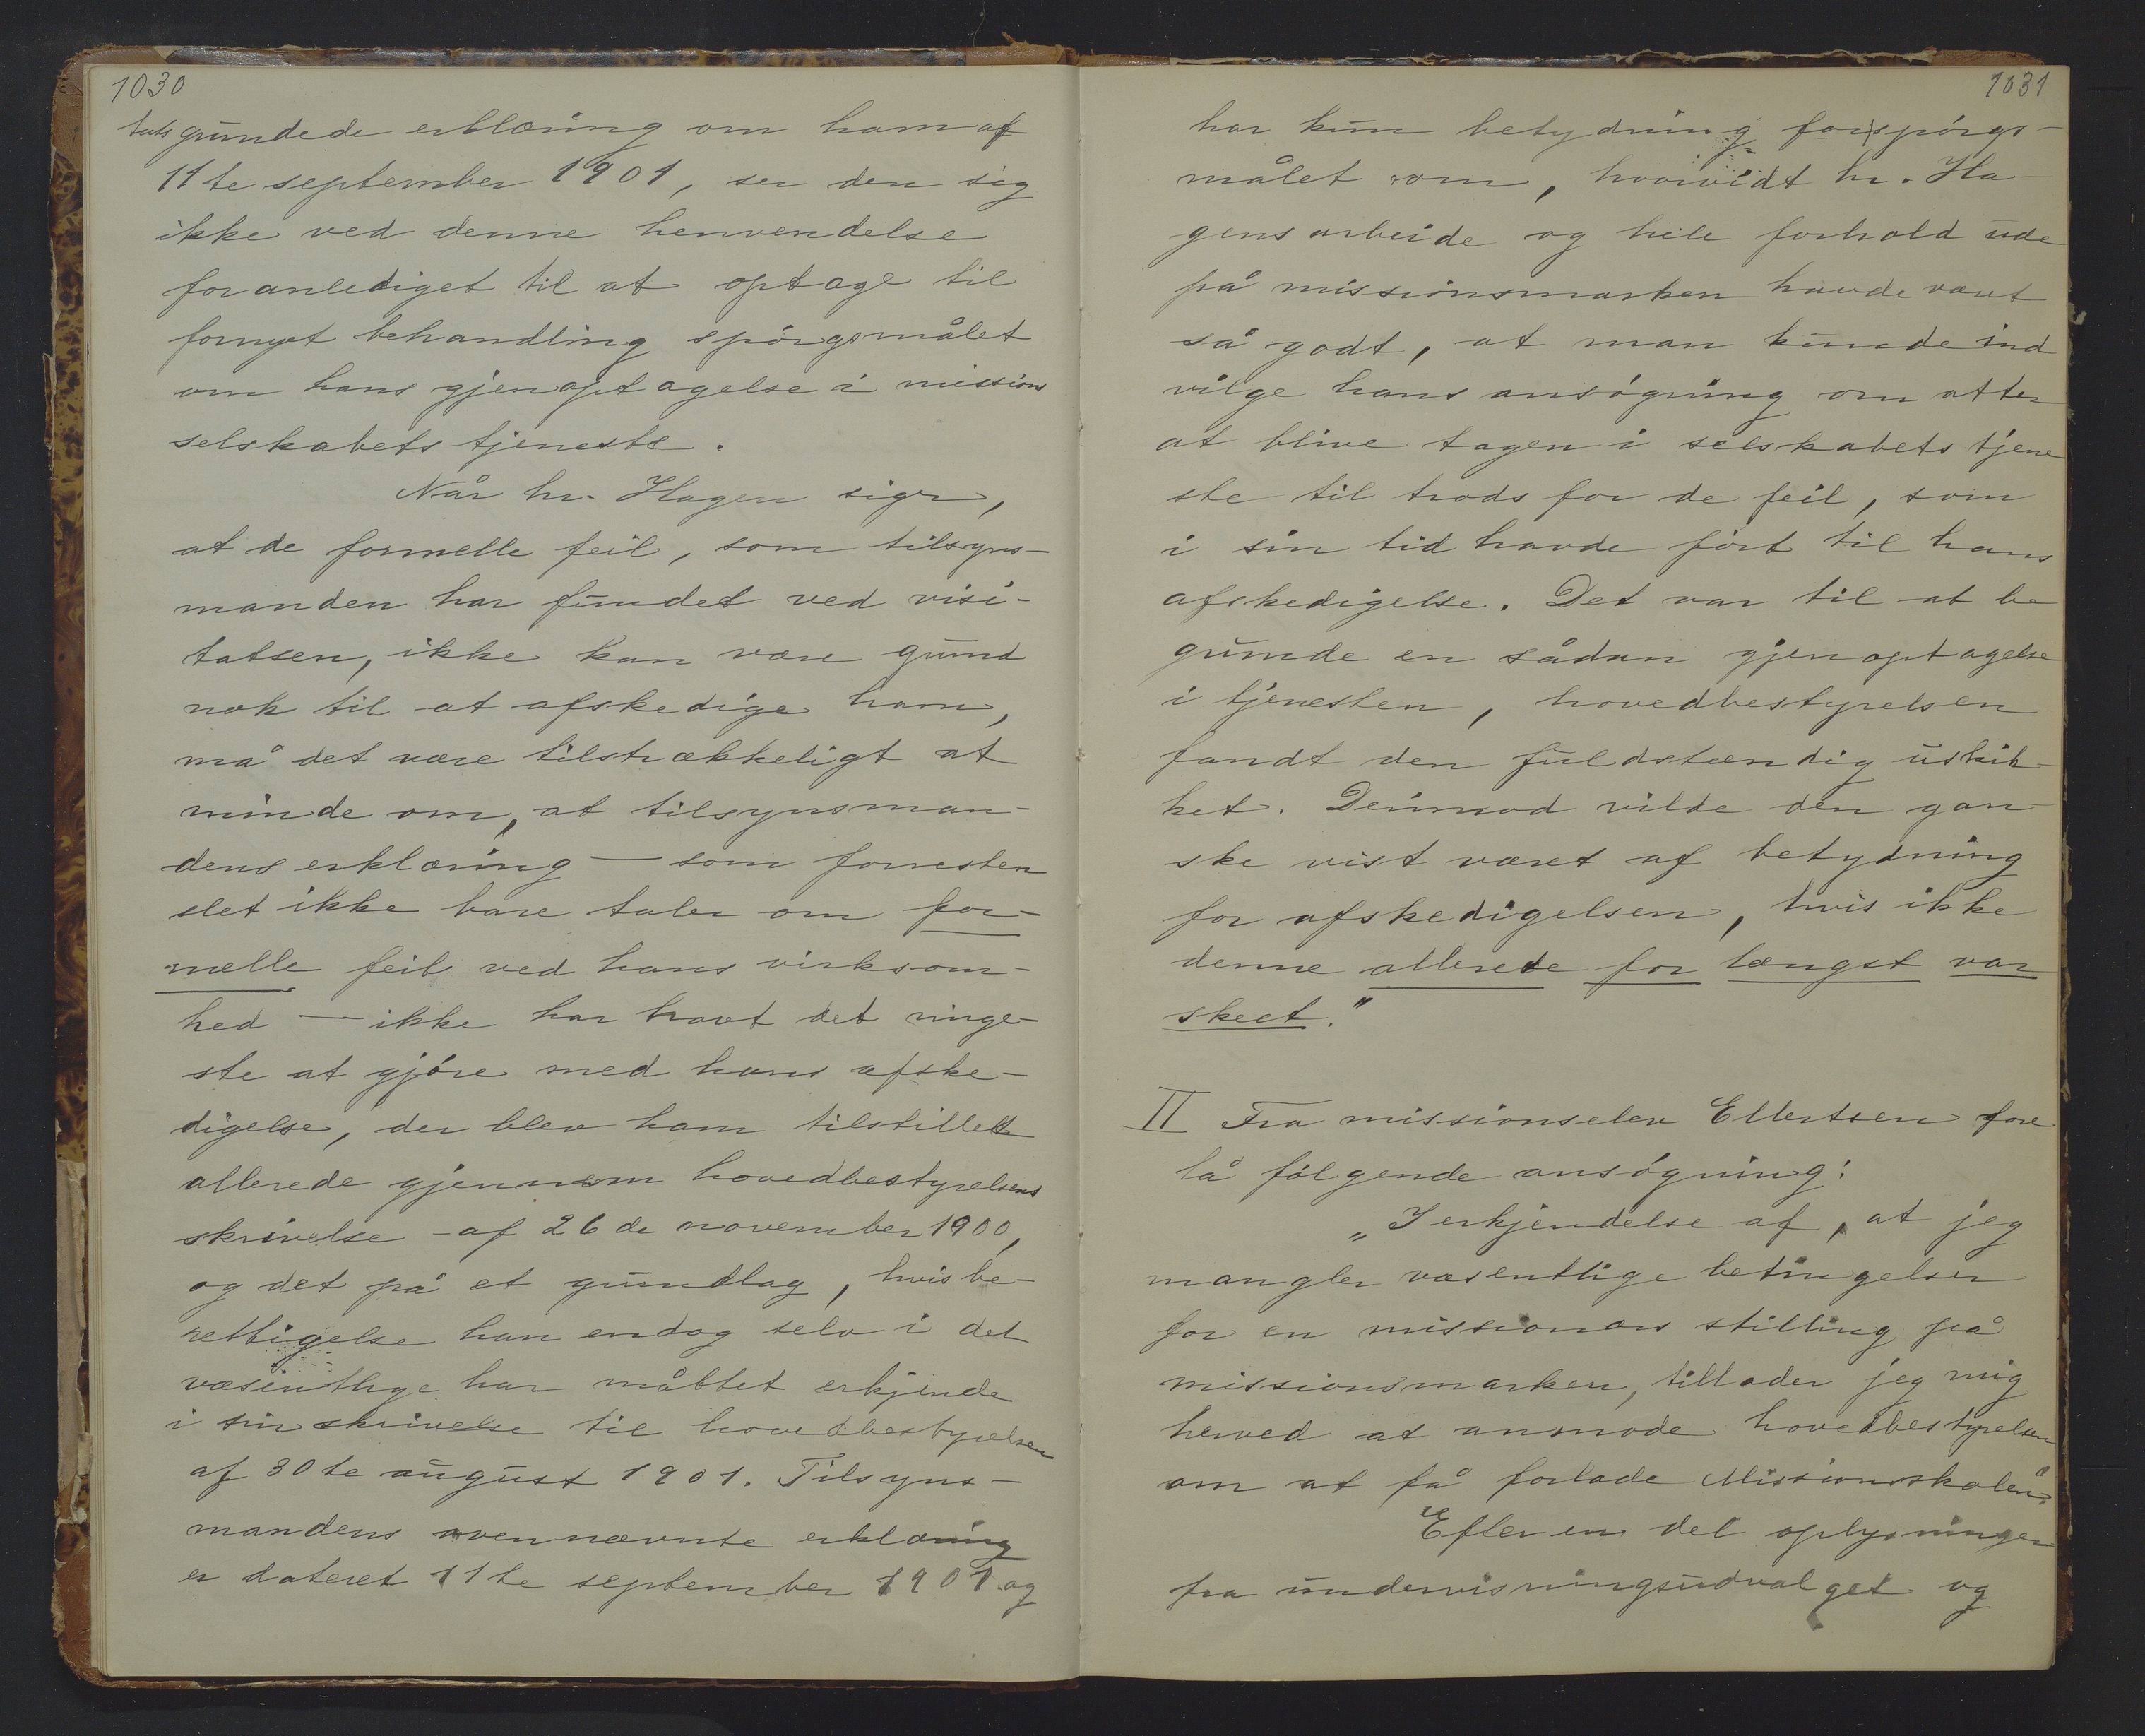 1030
grundede erklæring om ham af
11te september 1901, ser den sig
ikke ved denne henvendelse
foranlediget til at optage til
fornyet behandling spörgsmålet
om hans gjenoptagelse i missions
selskabets tjeneste.
Når hr. Hagen siger,
at de formelle feil, som tilsyns-
manden har fundet ved visi-
tatsen, ikke kan være grund
nok til at afskedige ham,
må det være tilstrækkeligt at
minde om, at tilsynsman-
dens erklæring — som forresten
slet ikke bare taler om for-
melle feil ved hans virksom-
hed — ikke har havt det ringe-
ste at gjöre med hans afske-
digelse, der blev ham tilstillet
allerede gjennem hovedbestyrelsens
skrivelse af 26de november 1900,
og det på et grundlag, hvis be-
rettigelse han endog selv i det
væsentlige har måttet erkjende
i sin skrivelse til hovedbestyrelsen
af 30te august 1901. Tilsyns-
mandens ovennævnte erklæring
er dateret 11te september 1901 og
1031
har kun betydning for spörgs-
målet om, hvorvidt hr. Ha-
gens arbeide og hele forhold ude
på missionsmarken havde været
så godt, at man kunde ind
vilge hans ansögning om atter
at blive tagen i selskabets tjene
ste til trods for de feil, som
i sin tid havde fört til hans
afskedigelse. Det var til at be
grunde en sådan gjenoptagelse
i tjenesten, hovedbestyrelsen
fandt den fuldstændig uskik-
ket. Derimod vilde den gan-
ske vist været af betydning
for afskedigelsen, hvis ikke
denne allerede for længst var
skeet."
II Fra missionselev Ellertsen fore
lå fölgende ansögning:
„I erkjendelse af, at jeg
mangler væsentlige betingelser
for en missionærs stilling på
missionsmarken, tillader jeg mig
herved at anmode hovedbestyrelsen
om at få forlade Missionsskolen."
Efter en del oplysninger
fra undervisningsudvalget og